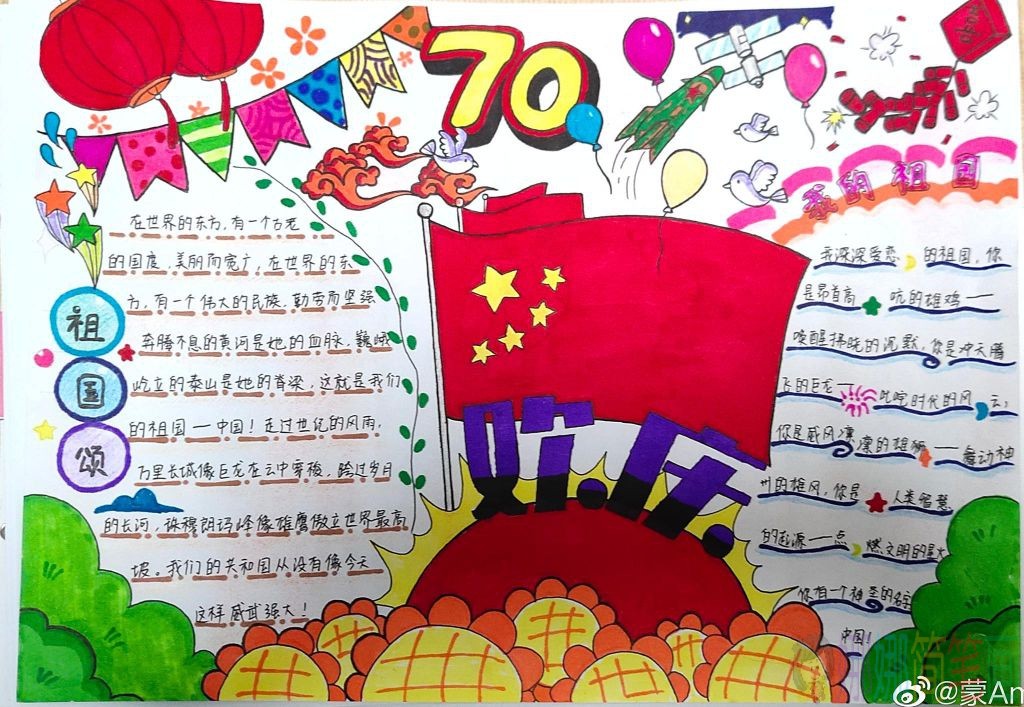 70
我的祖国
祖
国
颂
在世界的东方,有一个古老
的国度,美丽而宽广,在世界的东
方,有一个伟大的民族,勤劳而坚强
奔腾不息的黄河是她的血脉,巍峨
屹立的泰山是她的脊梁,这就是我们
的祖国—中国!走过世纪的风雨,
万里长城像巨龙在云中穿梭,跨过岁月
的长河,珠穆朗玛峰像雄鹰傲立世界最高
坡。我们的共和国从没有像今天
这样威武强大!
欢.庆.
我深深爱恋的祖国,你
是昂首高吭的雄鸡——
唤醒拂晓的沉默,你是冲天腾
飞的巨龙—叱咤时代的风云;
你是威风凛凛的雄狮——舞动神
州的雄风,你是人类智慧
的起源——点燃文明的星火
你有一个神圣的名字
中国!
简笔
@蒙An